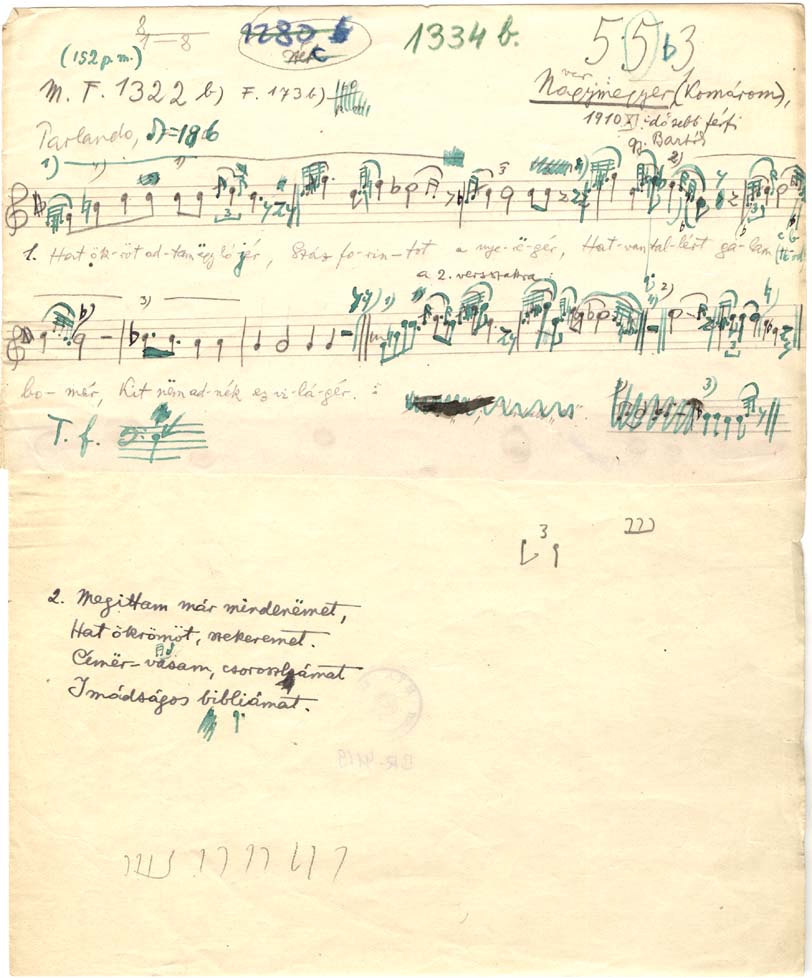 8
1–8
(152 p. m.)
1280
1334 b.
5 5 b 3
M. F. 1322 b) F. 173 b)
Nagymegyer (Komárom),
1910 XI. idősebb férfi
gy. Bartók
Parlando, ♪=186
1. Hat ök-röt ad-tam ëgy ló jér, Száz fo-rin-tot a nye-rë-gér, Hat-van tal-lért ga-lam
a 2. versszakra:
bo-mér, Kit nëm ad-nék ez vi-lá-gér. :
T. f.
3
2. Megittam már mindenëmet,
Hat ökrömöt, szekeremet.
Címër-vasam, csoroszlyámat
Imádságos bibliámat.
BR-4113